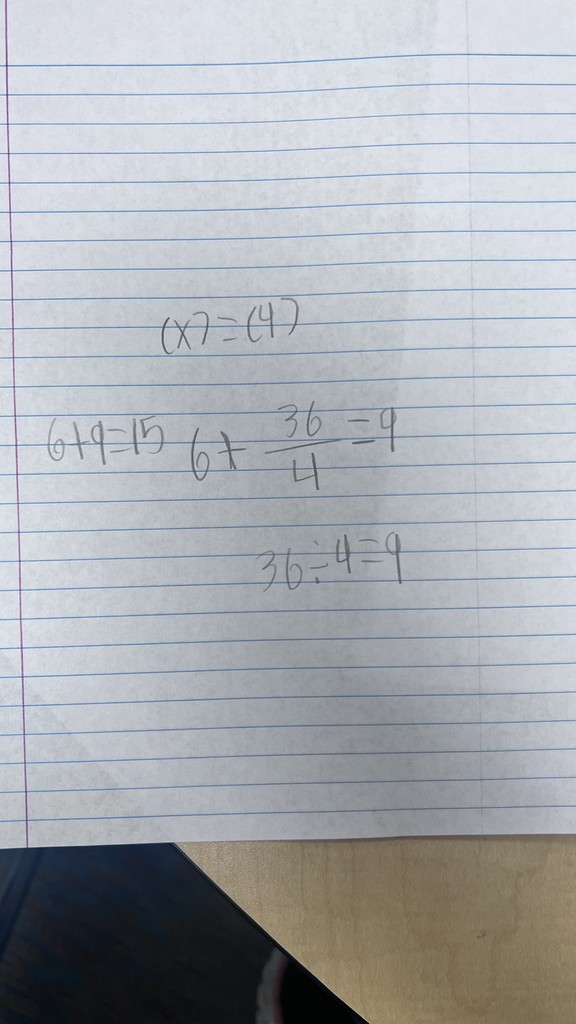 (x) = (4)
6+9=15 6+ 36/4 =9
36÷4=9